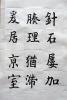 針石屢加
腠理猶滯
爰居京室